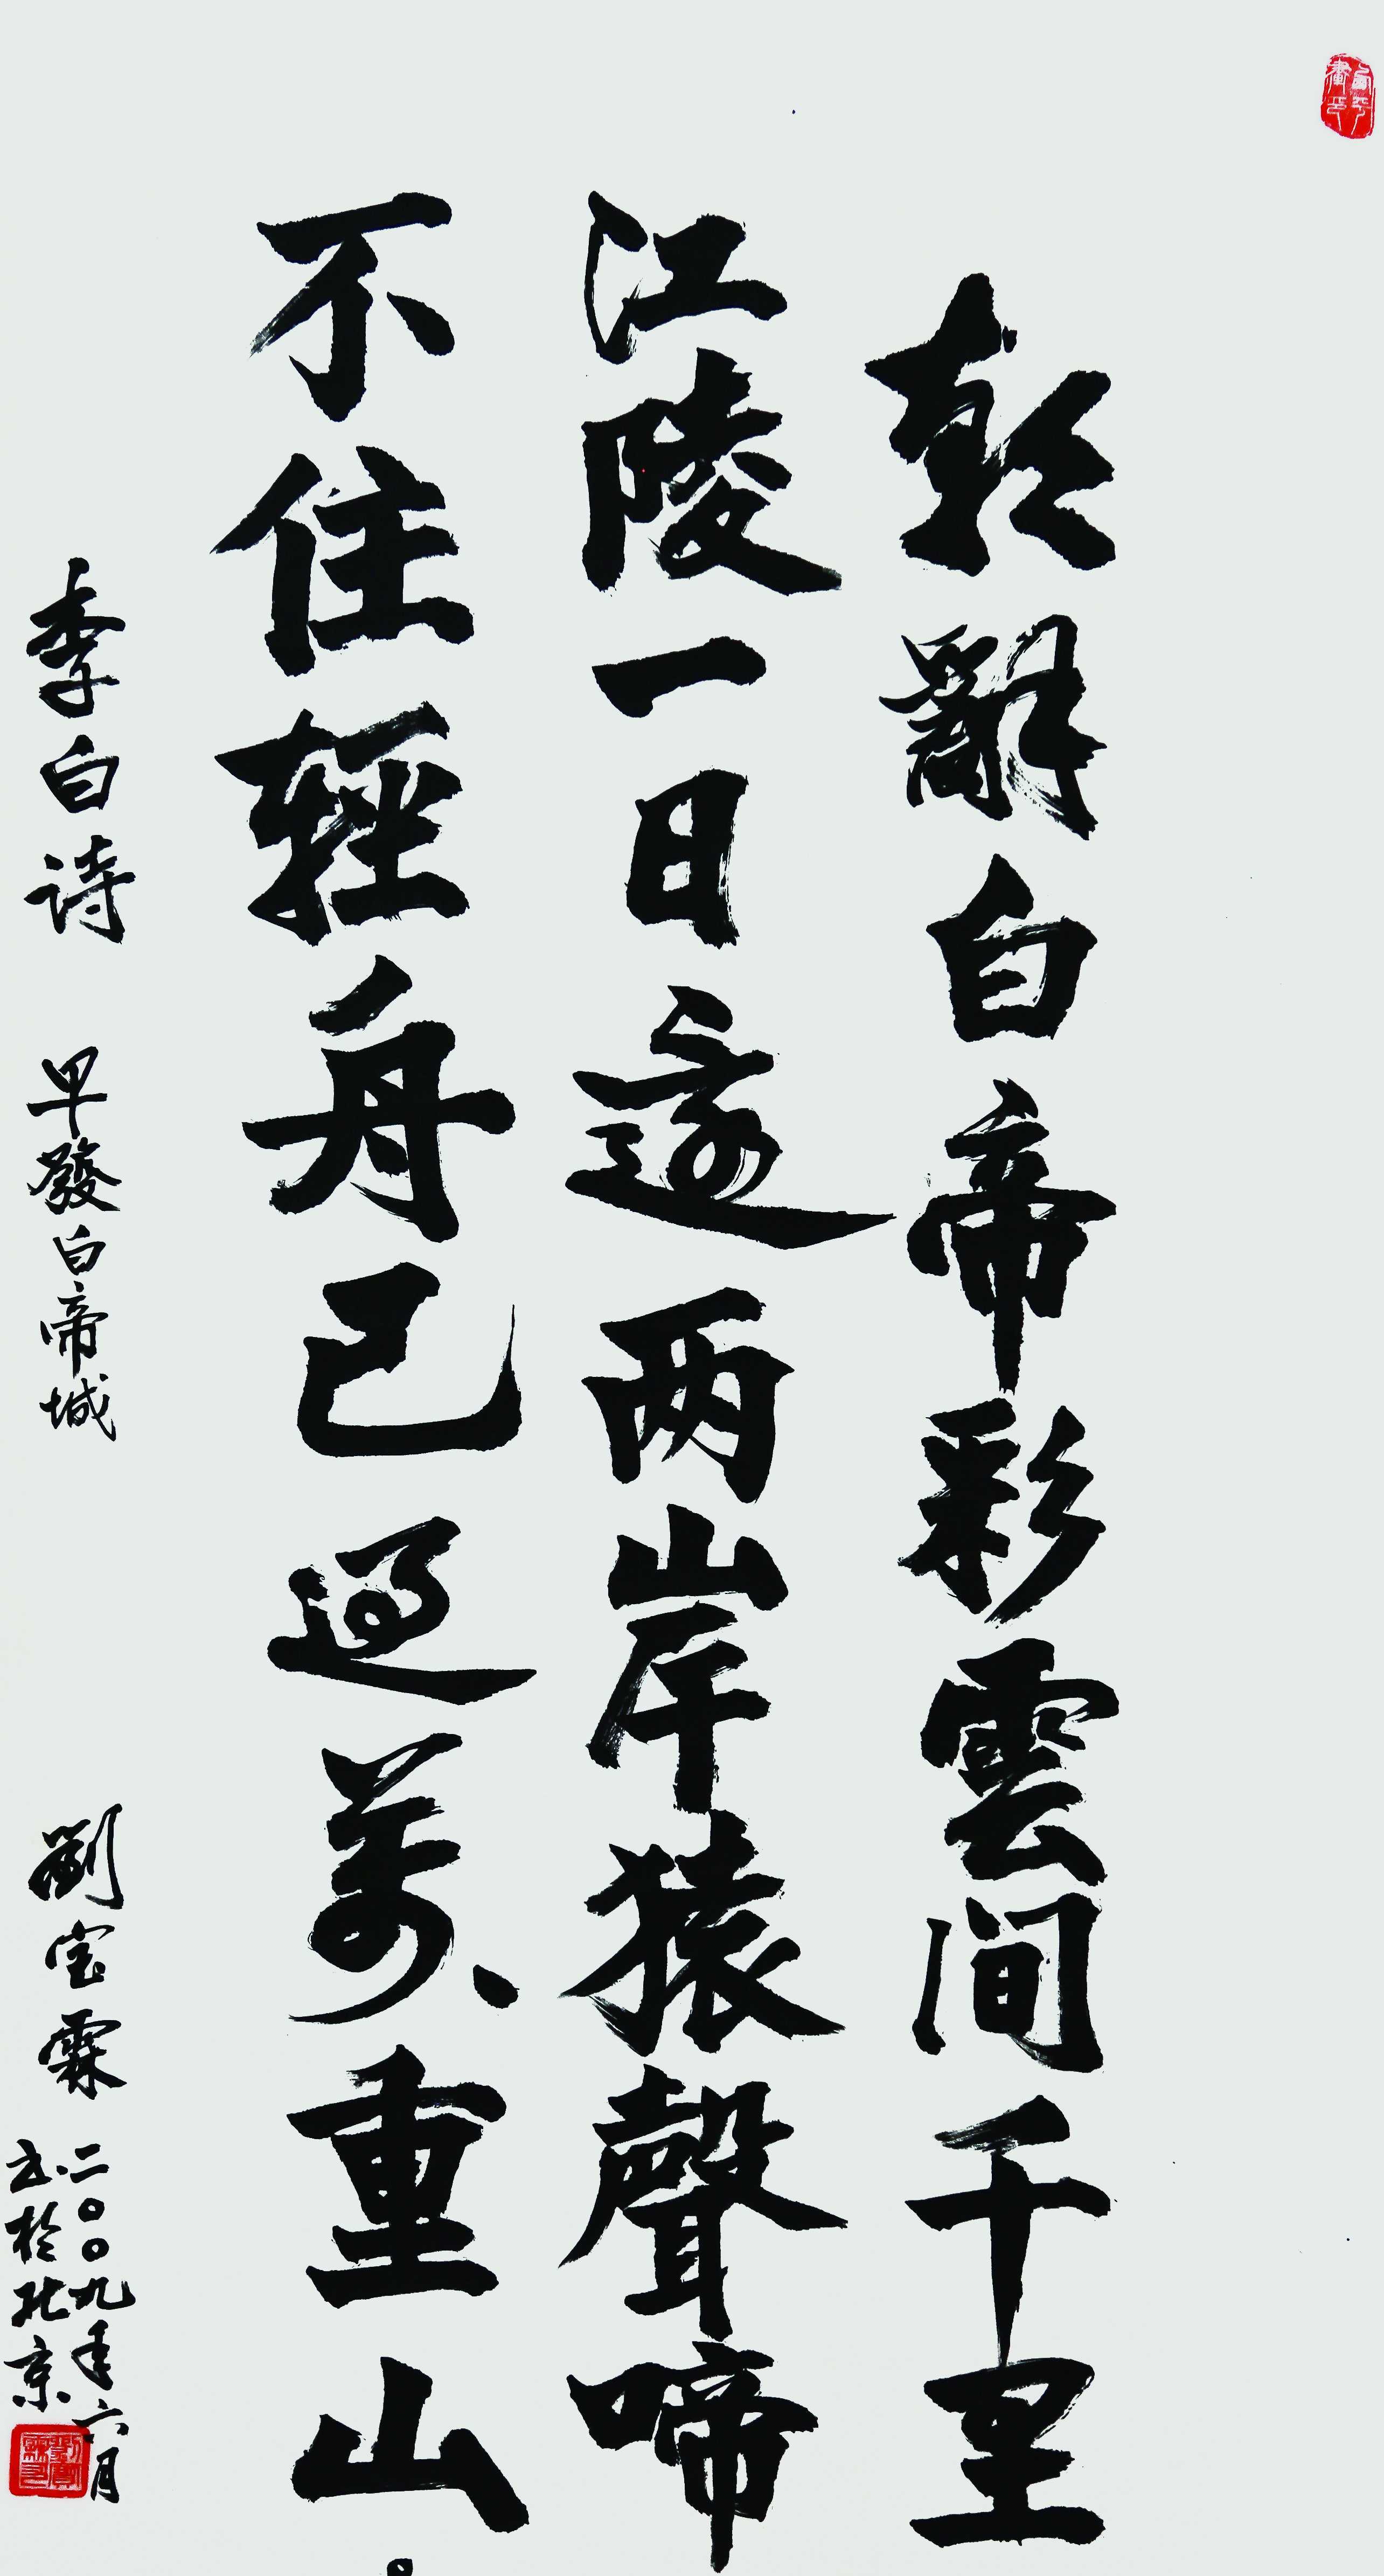 朝辭白帝彩雲间千里
江陵一日還两岸猿聲啼
不住輕舟已過萬重山。
李白诗 早發白帝城 劉宝霖 二〇〇九年六月
书於北京